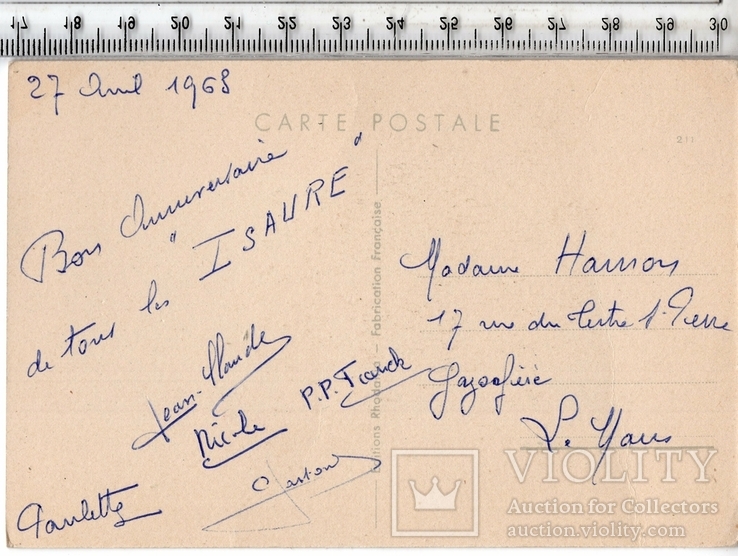 17 18 19 20 21 22 23 24 25 26 27 28 29 30
27 Avril 1968
CARTE POSTALE
Bon Anniversaire
de tous les "ISAURE"
Jean-Claude
Nicole P.P. Franck
Paulette Gaston
Editions Rhodania - Fabrication Française
211
Madame Hamon
17 rue du Tertre St. Pierre
Le Mans
VIOLITY
Auction for Collectors
auction.violity.com